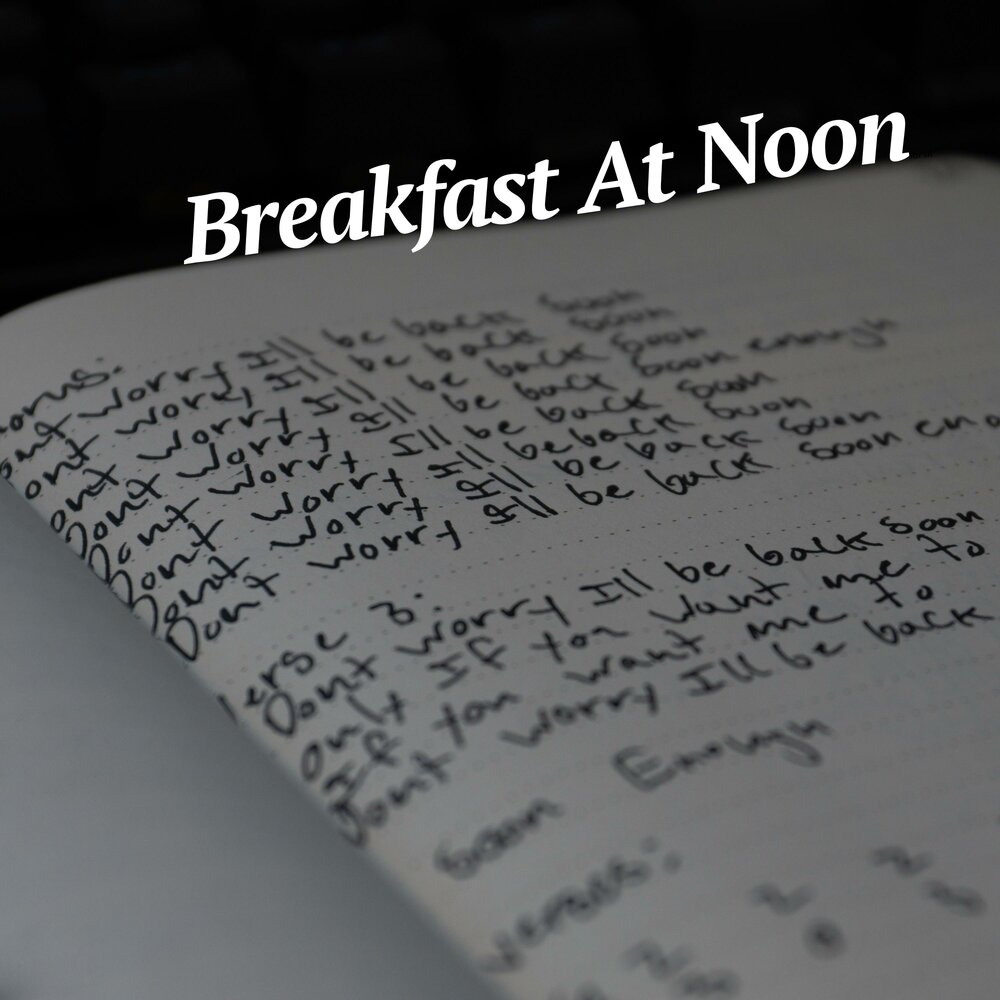 Breakfast At Noon
orus:
ont worry I'll be back soon
ont worry I'll be back soon
ont worry I'll be back soon
Dont worry I'll be back soon enough
Dont worry I'll be back soon
Dont worry I'll be back soon
Dont worry I'll be back soon
Dont worry I'll be back soon eno
erse 3:
Dont worry I'll be back soon
only If you want me to
If you want me to
Dont worry I'll be back
Soon Enough